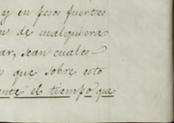 y en pesos fuertes
de cualquiera
ar, sean cuales
que sobre esto
ante el tiempo que